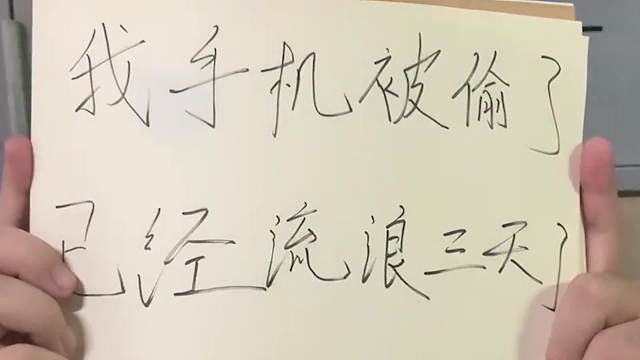 我手机被偷了
已经流浪三天了